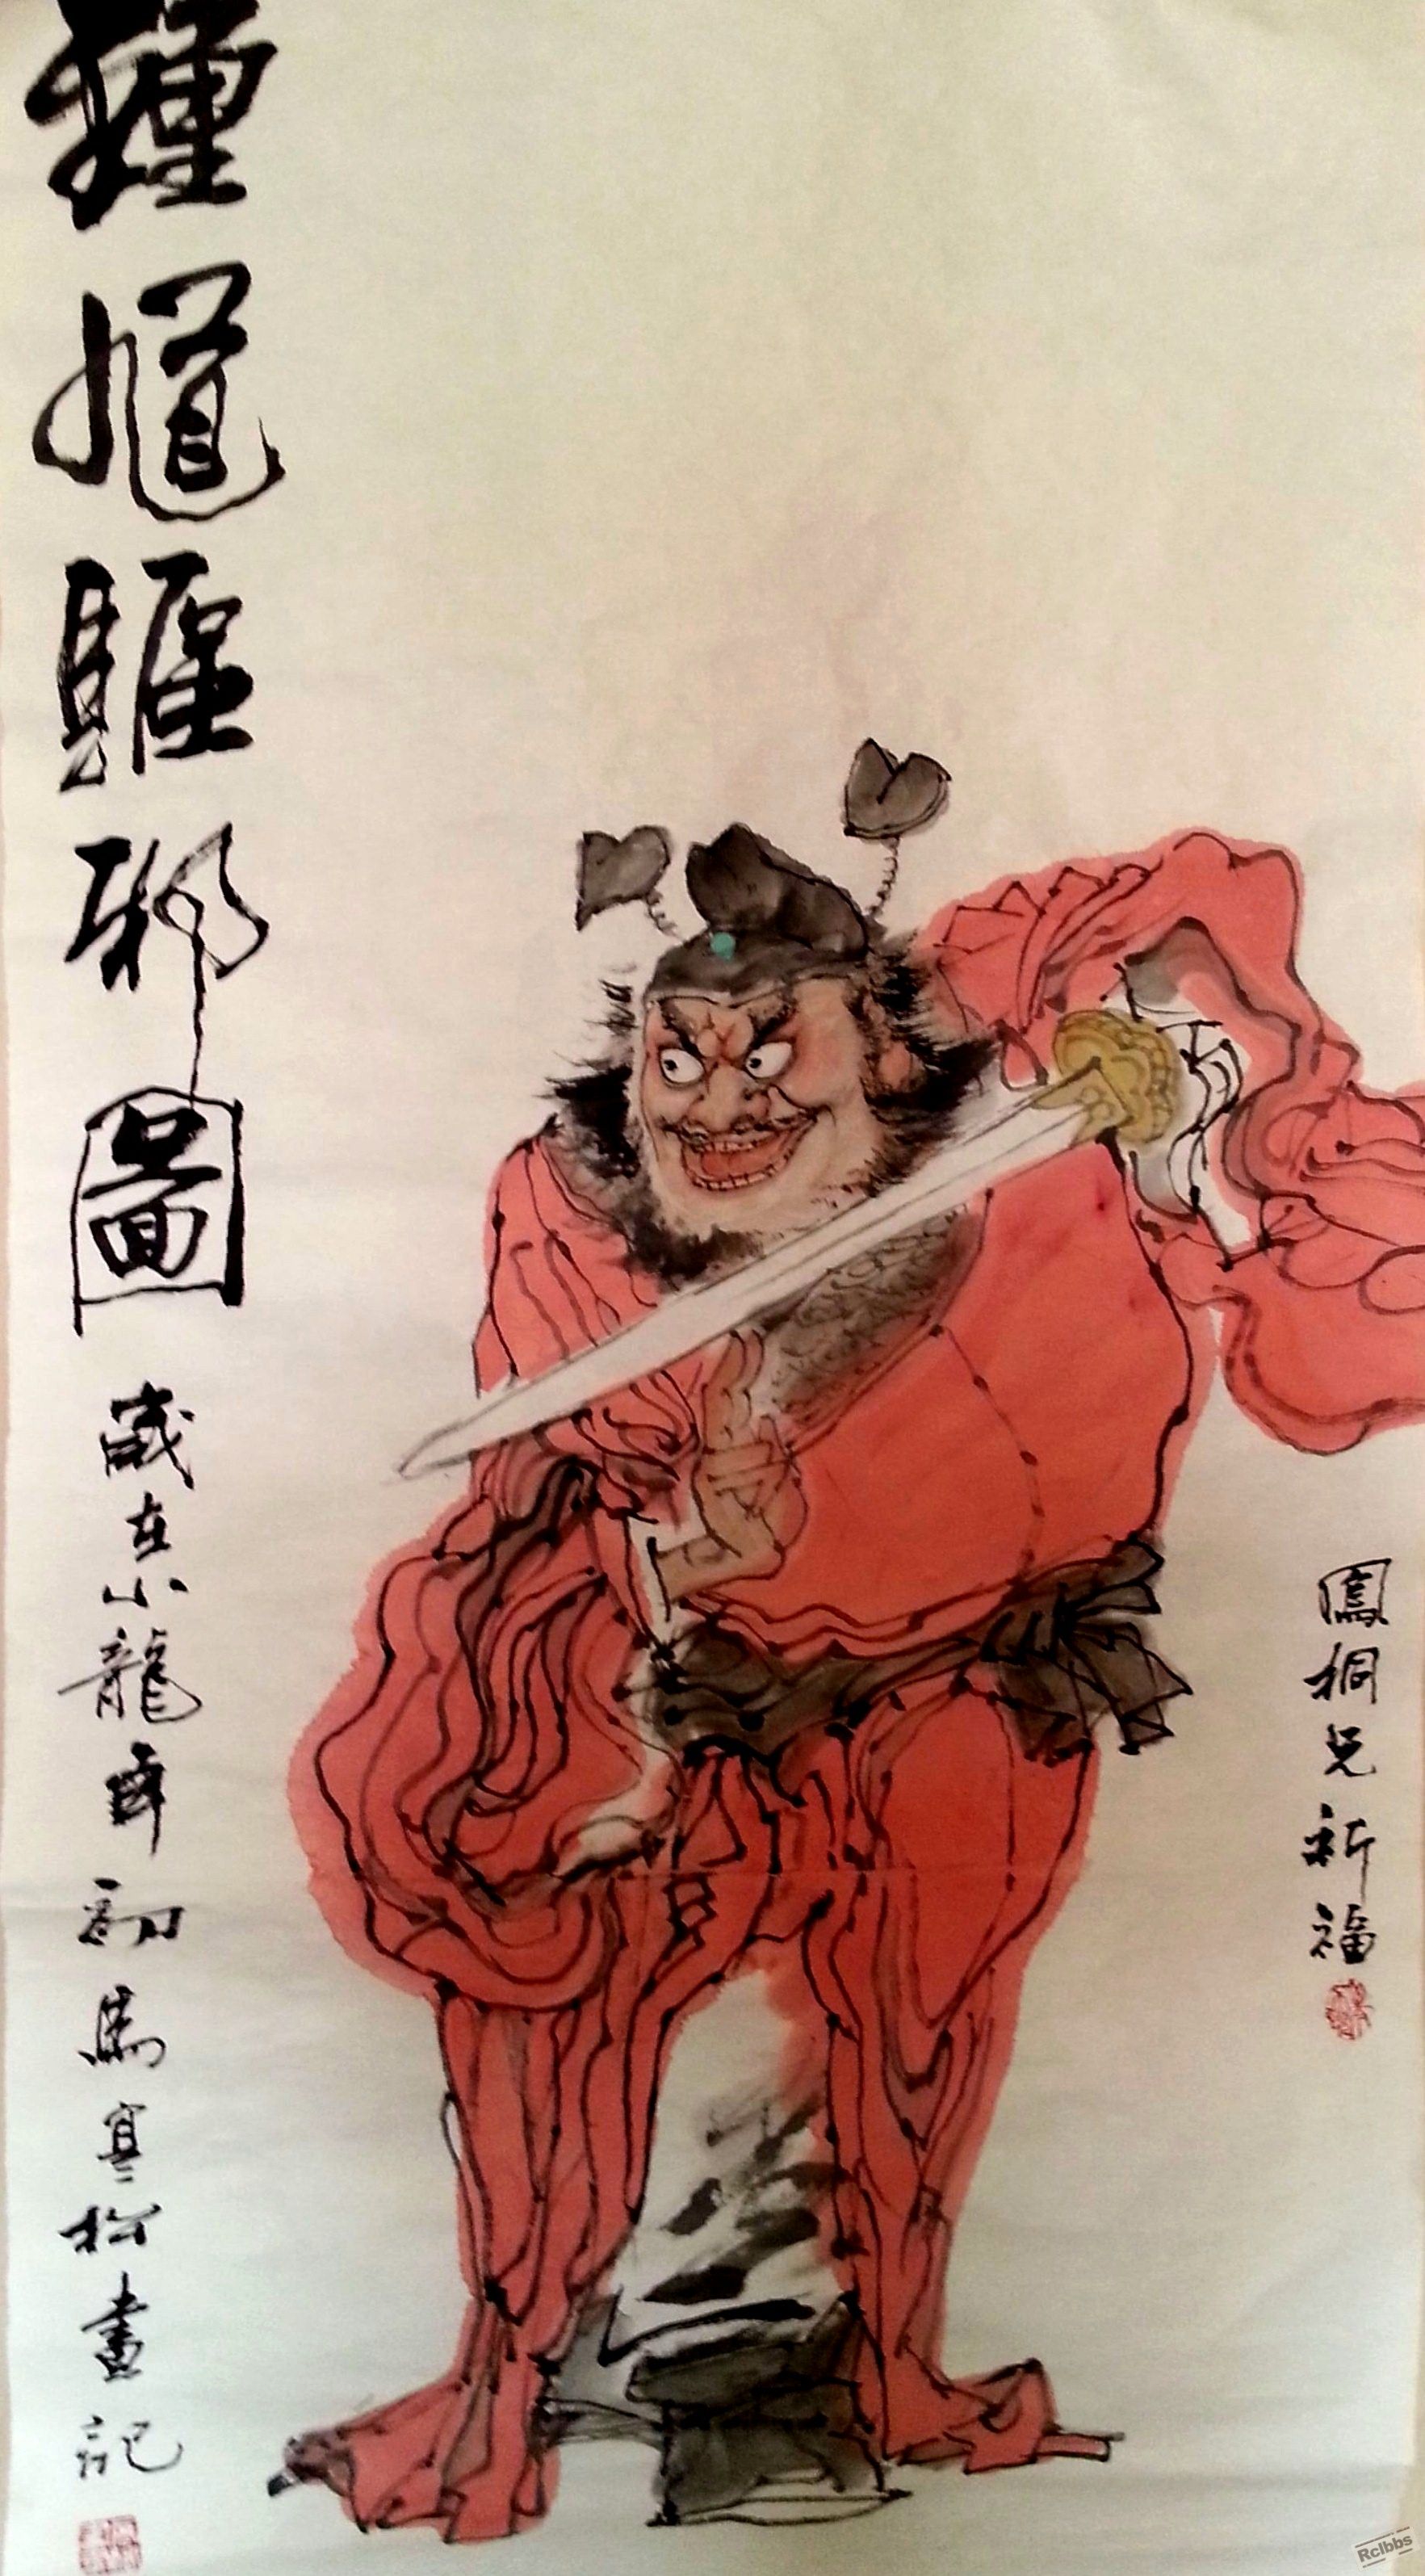 鍾馗驅邪圖
歲在小龍年初馬寒松畫記
鳳桐兄祈福
Rclbbs